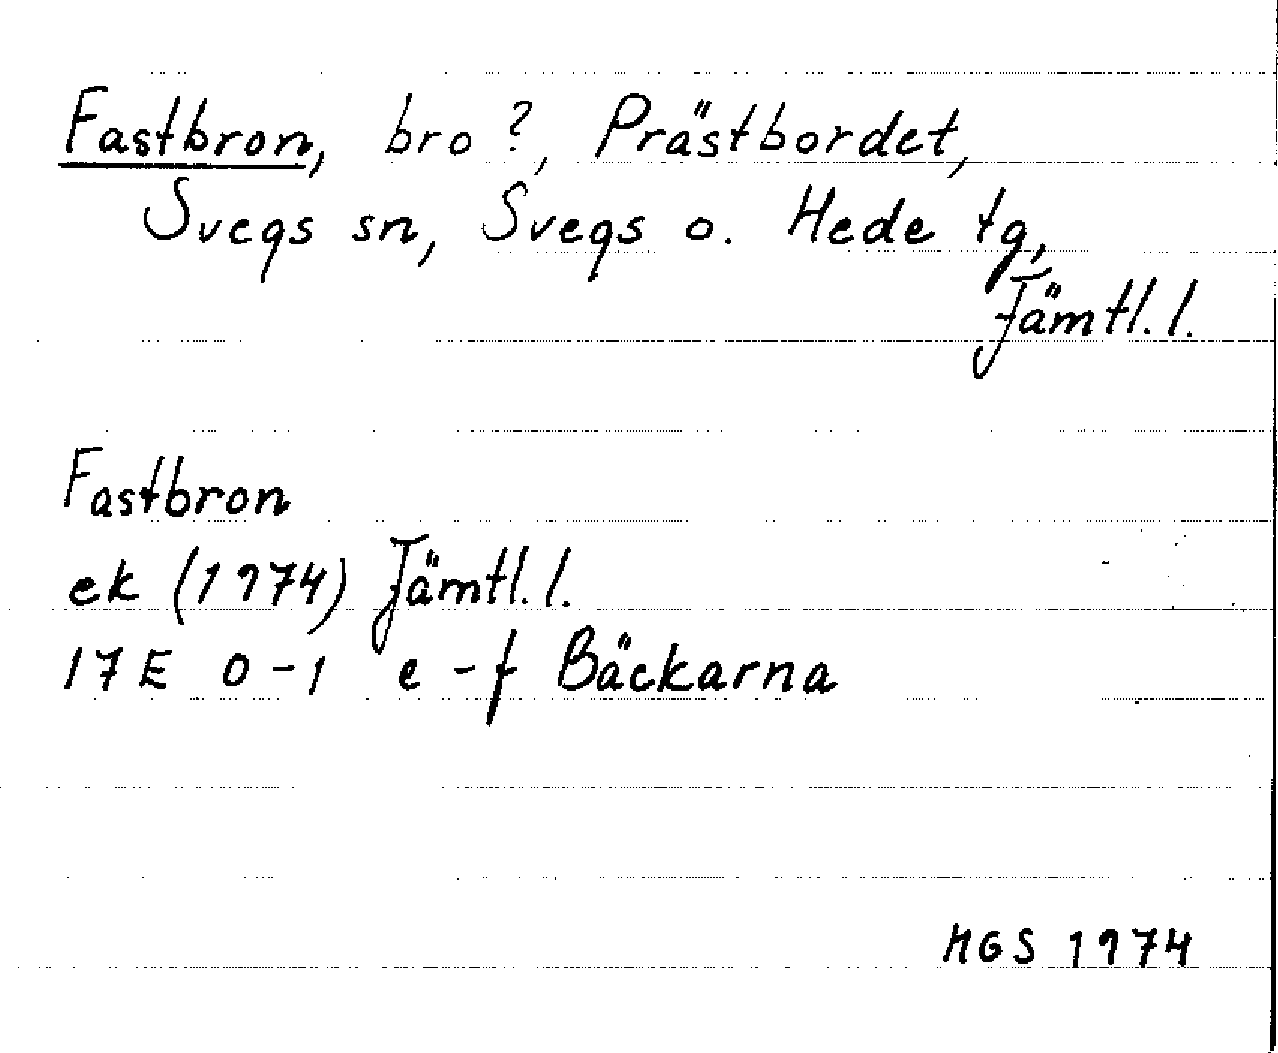 Fastbron, bro ?, Prästbordet,
Svegs sn, Svegs o. Hede tg,
Jämtl. l.
Fastbron
ek (1974) Jämtl. l.
17E 0-1 e-f Bäckarna
MGS 1974